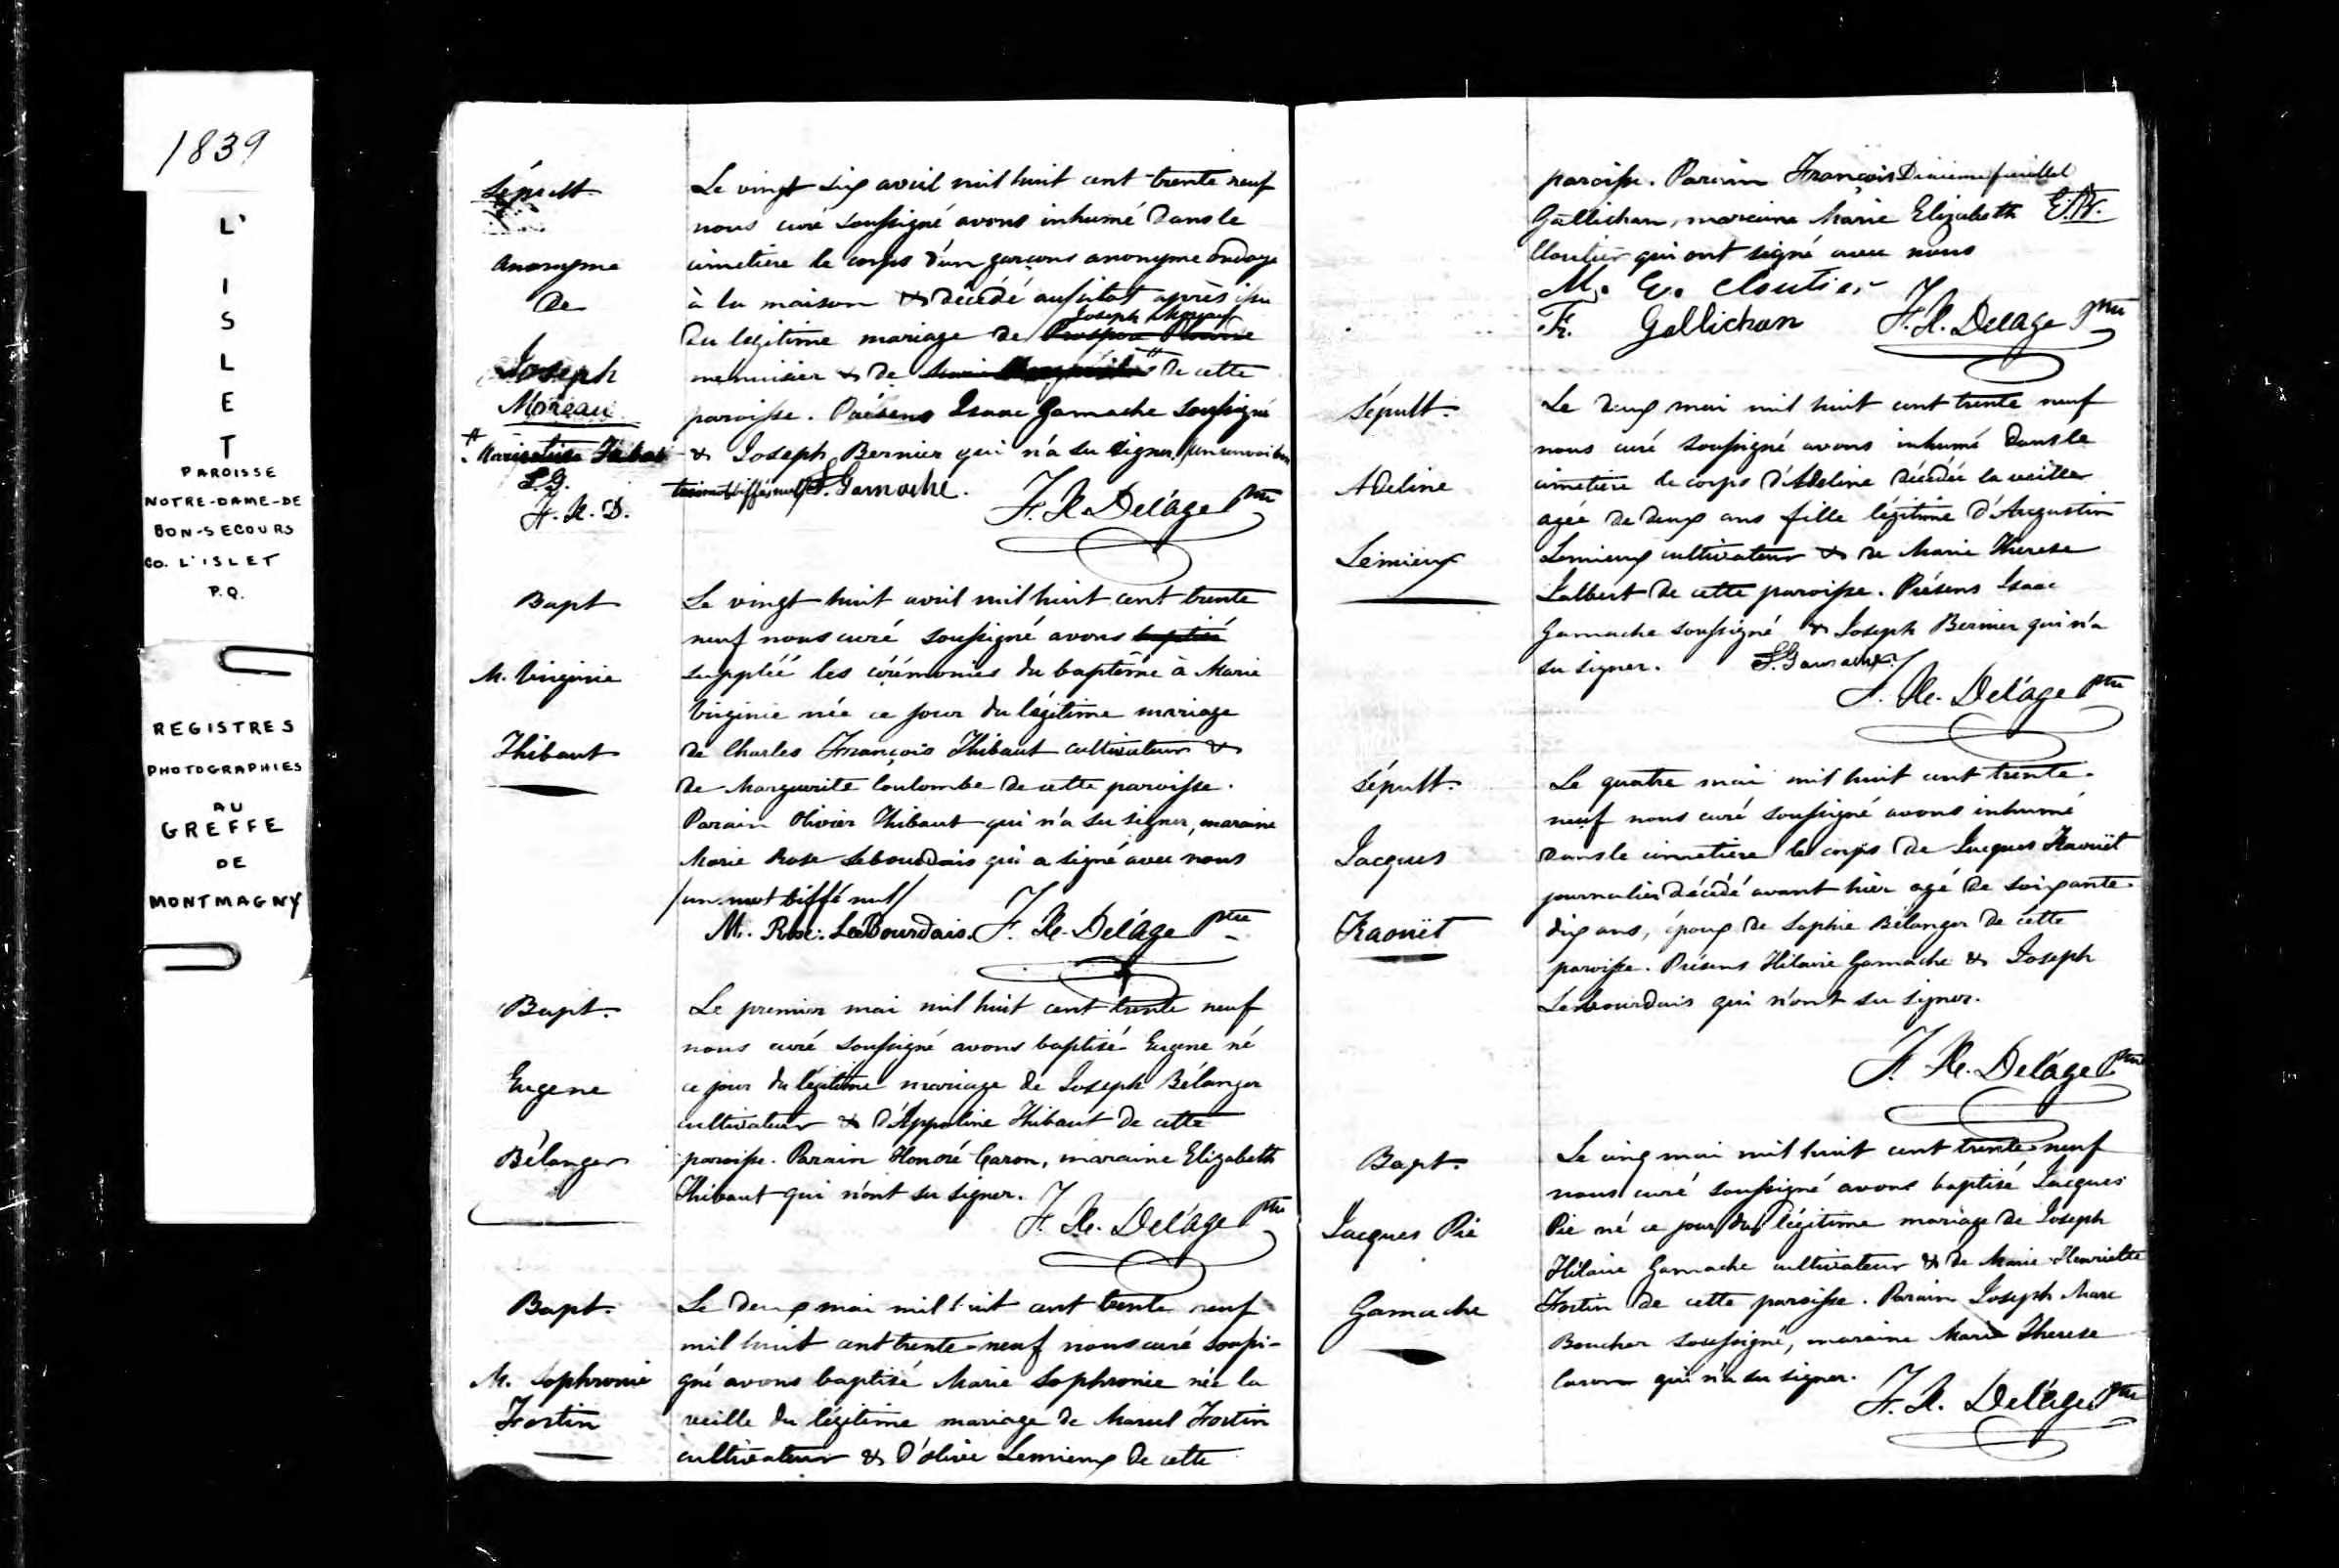 1839
L'
I
S
L
E
T
PAROISSE
NOTRE-DAME-DE
BON-SECOURS
CO. L'ISLET
P.Q.
REGISTRES
PHOTOGRAPHIES
AU
GREFFE
DE
MONTMAGNY
Sépult.
Anonyme
de
Joseph
Moreau
F. R. D.
Le vingt six avril mil huit cent trente neuf
nous curé soussigné avons inhumé dans le
cimetiere le corps d'un garçons anonyme ondoyé
à la maison & décédé aussitot après issu
Joseph Moreau
du legitime mariage de
menuisier & de de cette
paroisse. Présens Isaac Gamache soussigné
& Joseph Bernier qui n'a su signer. /un renvoi bon
trois mots biffés nuls/ I. Gamache.
F. R. Delâge Ptre
Bapt
M. Virginie
Thibaut
Le vingt huit avril mil huit cent trente
neuf nous curé soussigné avons baptisé
suppléé les cérémonies du baptême à Marie
Virginie née ce jour du légitime mariage
de Charles François Thibaut cultivateur &
de Marguerite Coulombe de cette paroisse.
Parain Olivier Thibaut qui n'a su signer, maraine
Marie Rose Lebourdais qui a signé avec nous
/un mot biffé nul/
M. Rose. LeBourdais. F. R. Delâge Ptre
Bapt.
Eugene
Bélanger
Le premier mai mil huit cent trente neuf
nous curé soussigné avons baptisé Eugene né
ce jour du légitime mariage de Joseph Bélanger
cultivateur & d'Appoline Thibaut de cette
paroisse. Parain Honoré Caron, maraine Elizabeth
Thibaut qui n'ont su signer.
F. R. Delâge Ptre
Bapt.
M. Sophronie
Fortin
Le deux mai mil huit cent trente neuf
mil huit cent trente neuf nous curé soussi-
gné avons baptisé Marie Sophronie née la
veille du légitime mariage de Marcel Fortin
cultivateur & d'olive Lemieux de cette
paroisse. Parain François Dixieme feuillet
Gallichan, maraine Marie Elizabeth
Cloutier qui ont signé avec nous
M. E. Cloutier
Fr. Gallichan F. R. Delage Ptre
Sépult.
Adeline
Lemieux
Le deux mai mil huit cent trente neuf
nous curé soussigné avons inhumé dans le
cimetiere le corps d'Adeline décédée la veille
agée de deux ans fille légitime d'Augustin
Lemieux cultivateur & de Marie Therese
Jalbert de cette paroisse. Présens Isaac
Gamache soussigné & Joseph Bernier qui n'a
su signer. I. Gamache.
F. R. Delâge Ptre
Sépult.
Jacques
Kaouët
Le quatre mai mil huit cent trente
neuf nous curé soussigné avons inhumé
dans le cimetiere le corps de Jacques Kaouët
journalier décédé avant hier agé de soixante
dix ans, époux de Sophie Bélanger de cette
paroisse. Présens Hilaire Gamache & Joseph
Lebourdais qui n'ont su signer.
F. R. Delâge Ptre
Bapt.
Jacques Pie
Gamache
Le cinq mai mil huit cent trente neuf
nous curé soussigné avons baptisé Jacques
Pie né ce jour du légitime mariage de Joseph
Hilaire Gamache cultivateur & de Marie Henriette
Fortin de cette paroisse. Parain Joseph Marc
Boucher soussigné, maraine Marie Therese
Caron qui n'a su signer.
F. R. Delâge Ptre